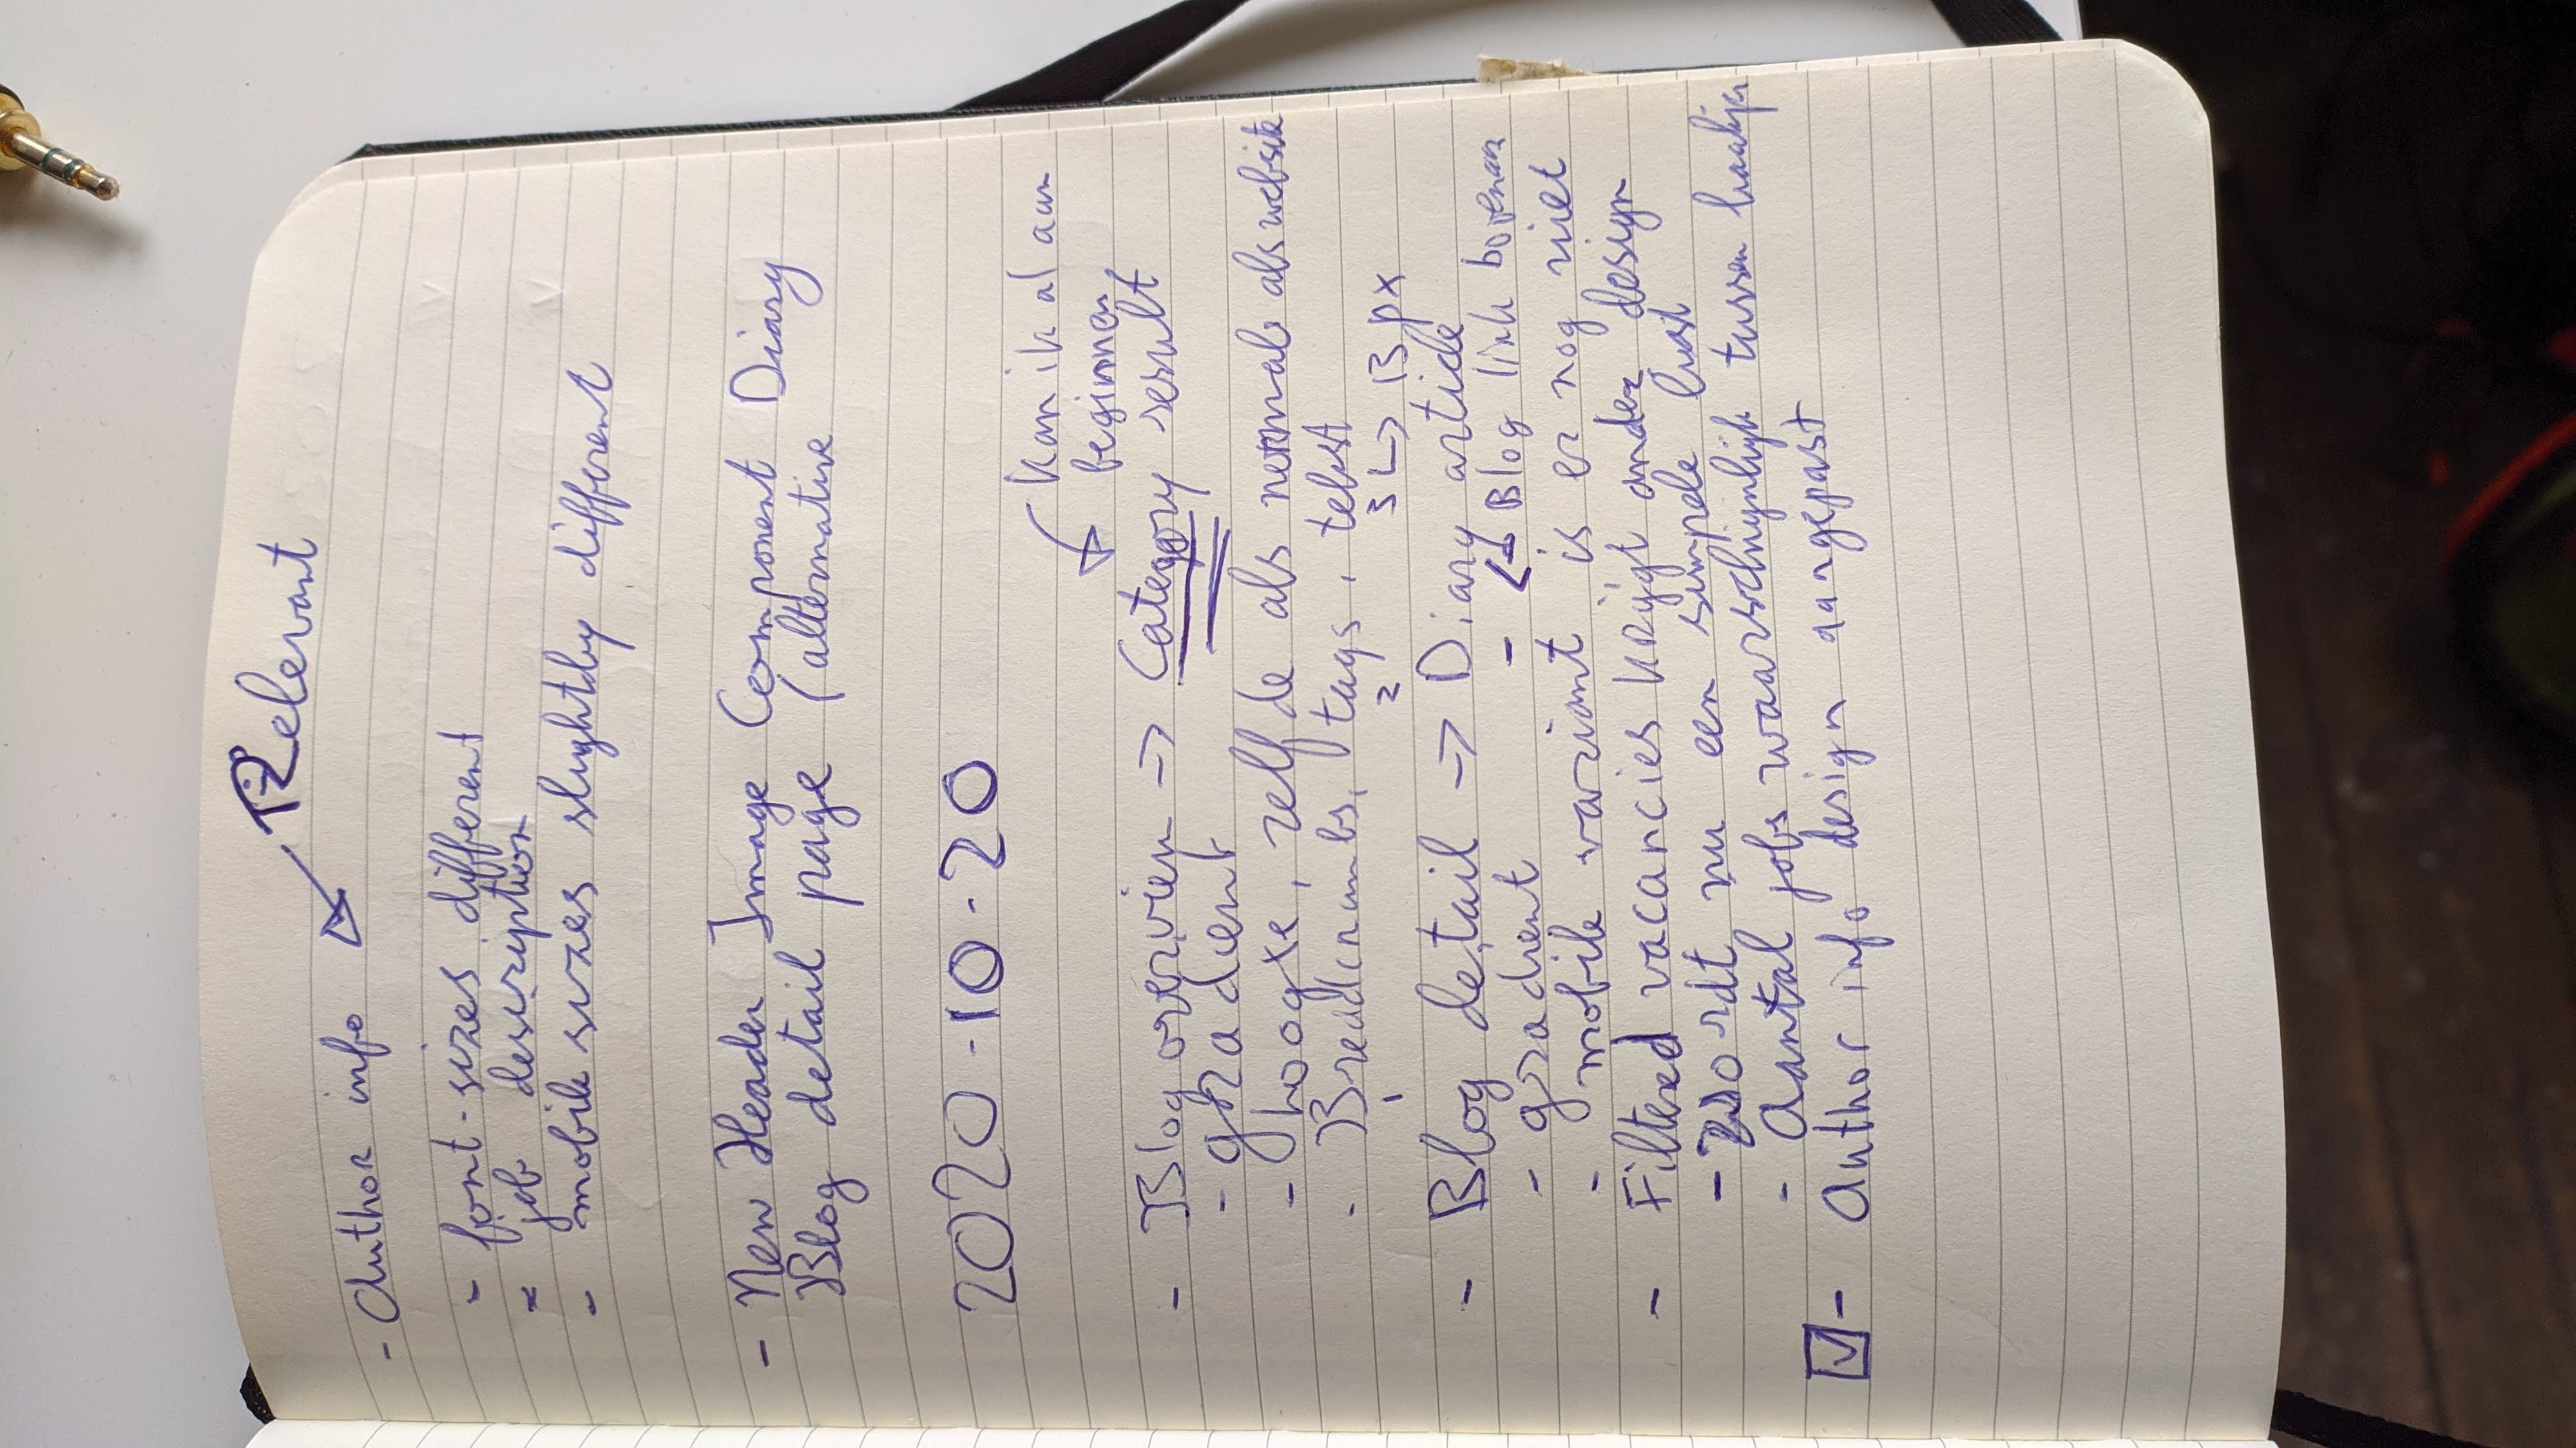 Relevant
- Author info
- font-sizes different
- job description
- mobile sizes slightly different
- New Header Image Component Diary
Blog detail page (alternative
2020-10-20
kan ik al aan
beginnen
- Blog overview -> Category result
- gradient
- hoogte, zelfde als normale als website
- Breadcrumbs, tags, tekst
1 2 3 ↳ 13 px
- Blog detail -> Diary article
- gradient - <- Blog link bovenaan
- mobile variant is er nog niet
- Filtered vacancies krijgt ander design
- wordt nu een simpele lijst
- Aantal jobs waarschijnlijk tussen haakjes
☑ - Author info design aangepast